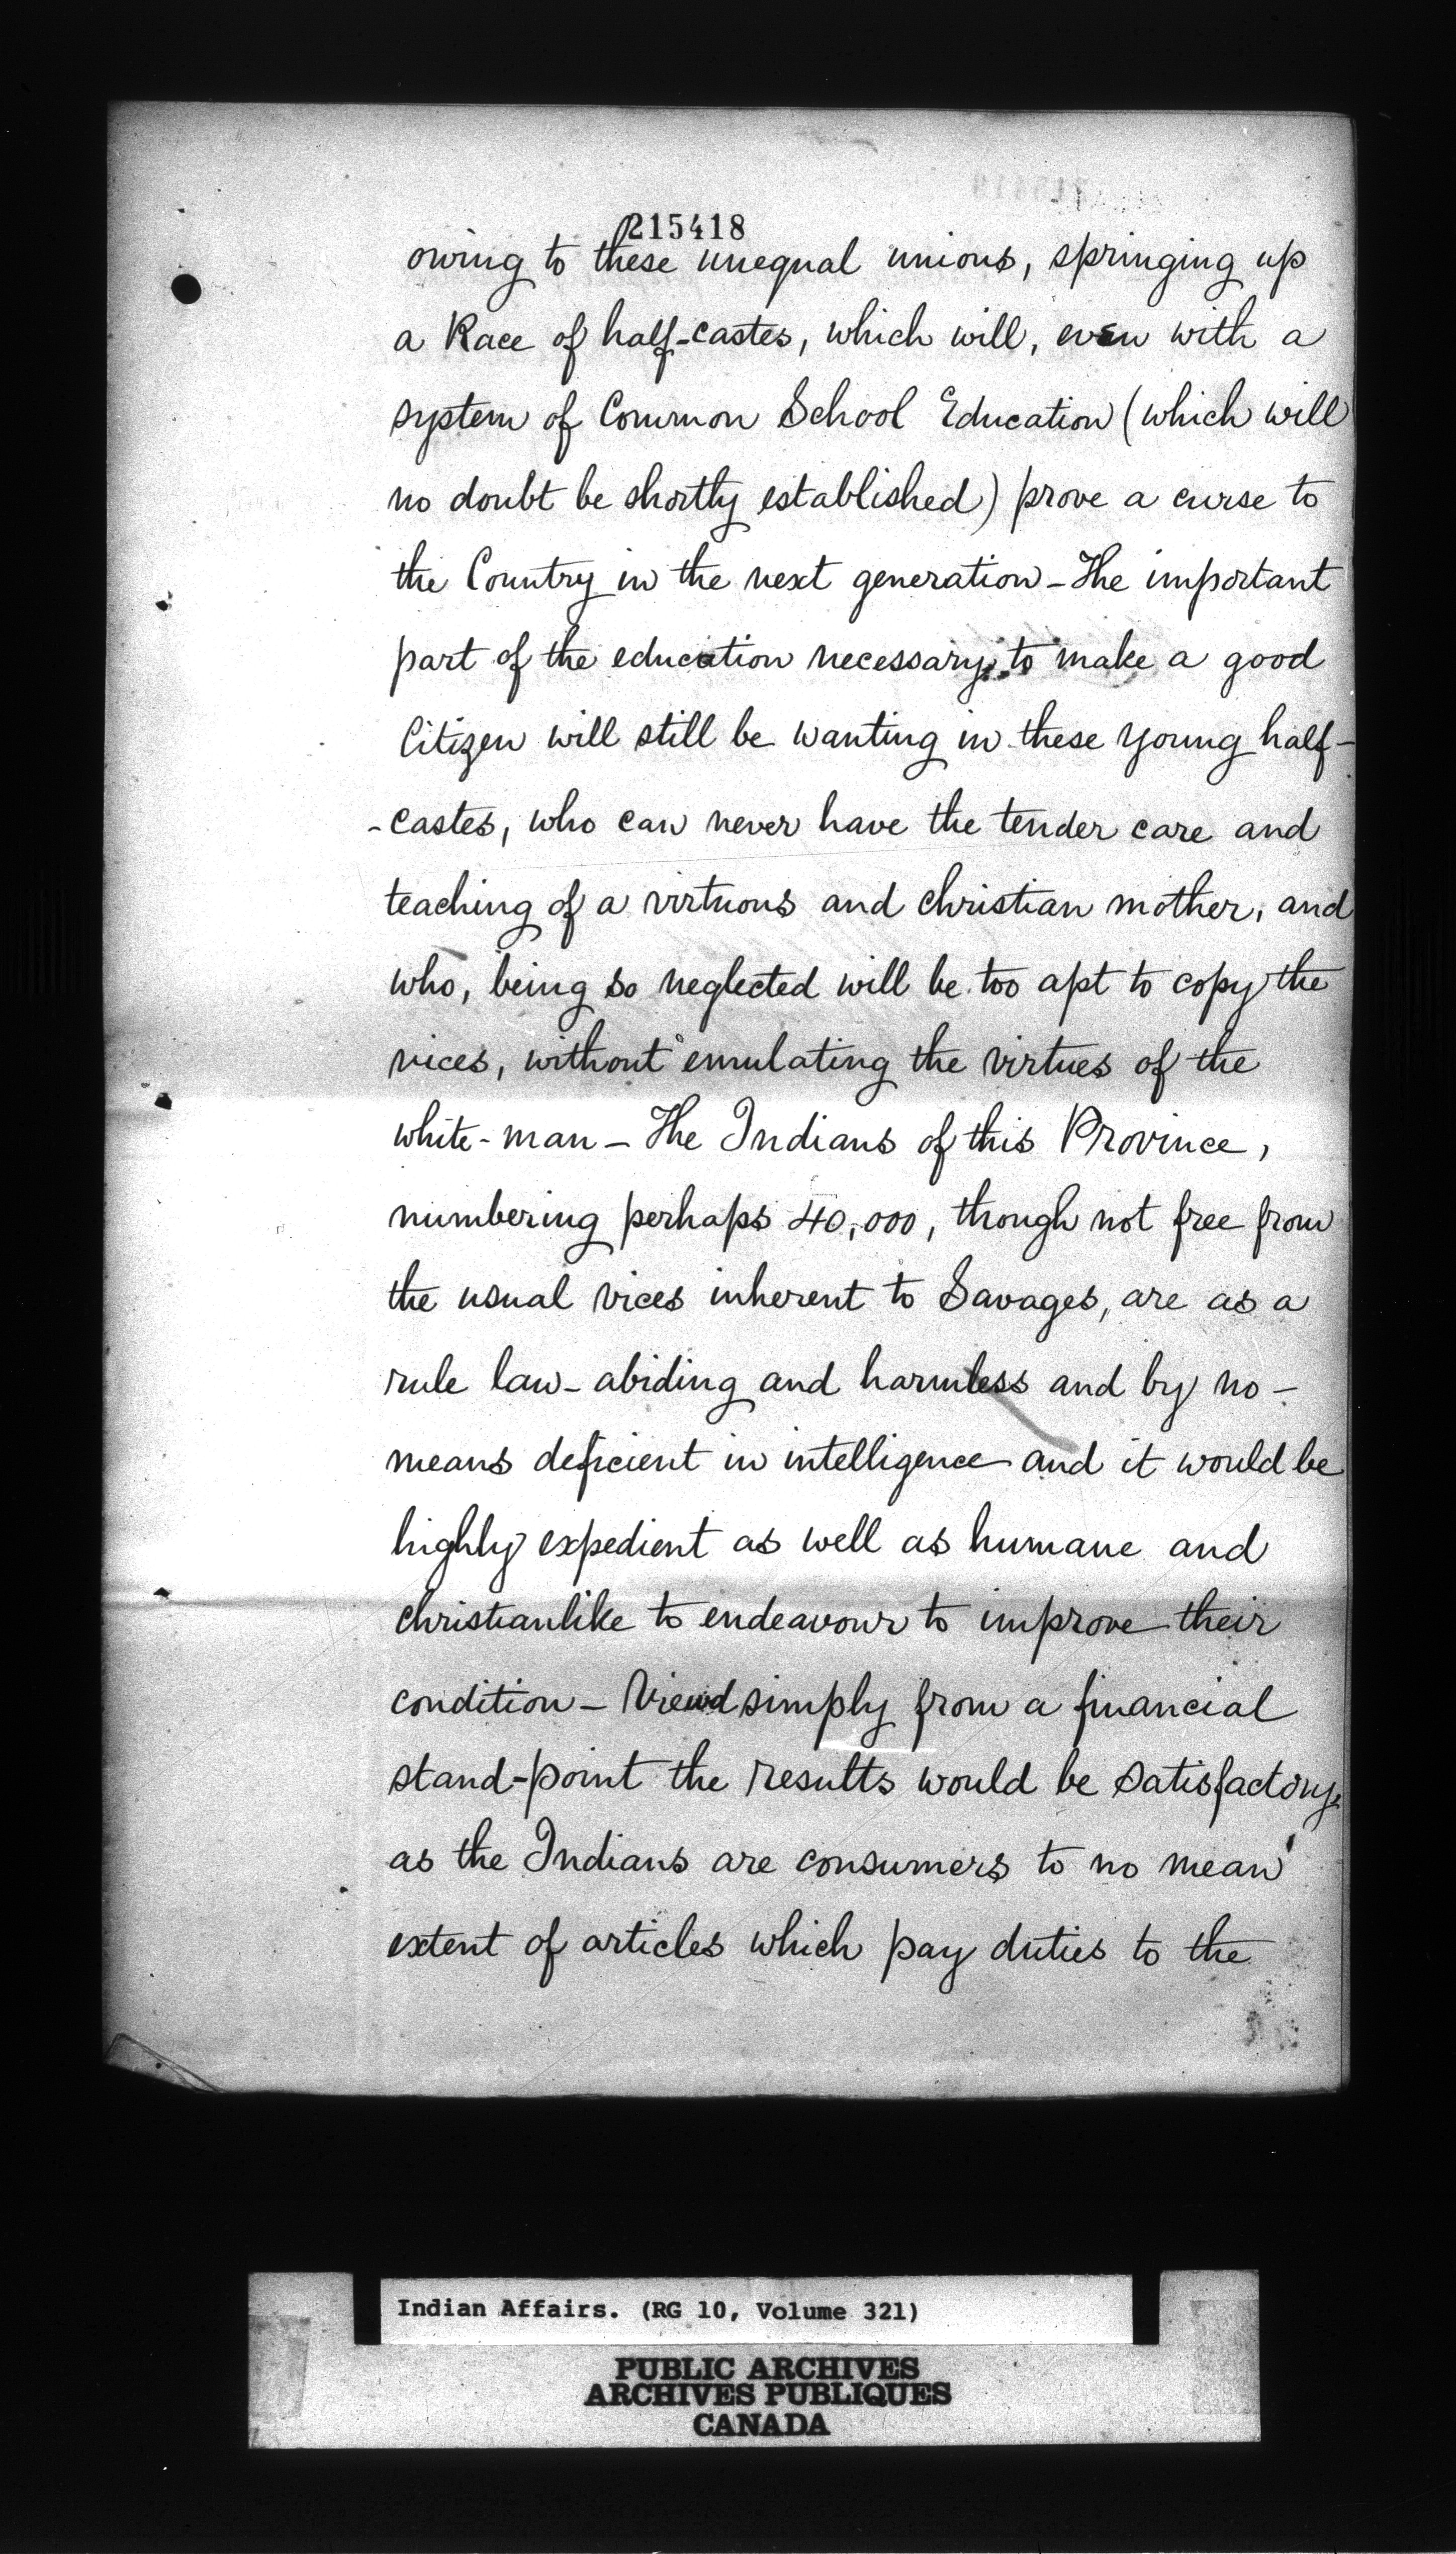 215418
owing to these unequal unions, springing up
a Race of half-castes, which will, even with a
system of Common School Education (which will
no doubt be shortly established) prove a curse to
the Country in the next generation - The important
part of the education necessary to make a good
Citizen will still be wanting in these young half-
-castes, who can never have the tender care and
teaching of a virtuous and christian mother, and
who, being so neglected will be too apt to copy the
vices, without emulating the virtues of the
white-man - The Indians of this Province,
numbering perhaps 40,000, though not free from
the usual vices inherent to Savages, are as a
rule law-abiding and harmless and by no-
means deficient in intelligence and it would be
highly expedient as well as humane and
christianlike to endeavour to improve their
condition - Viewd simply from a financial
stand-point the results would be satisfactory,
as the Indians are consumers to no mean
extent of articles which pay duties to the
Indian Affairs. (RG 10, Volume 321)
PUBLIC ARCHIVES
ARCHIVES PUBLIQUES
CANADA